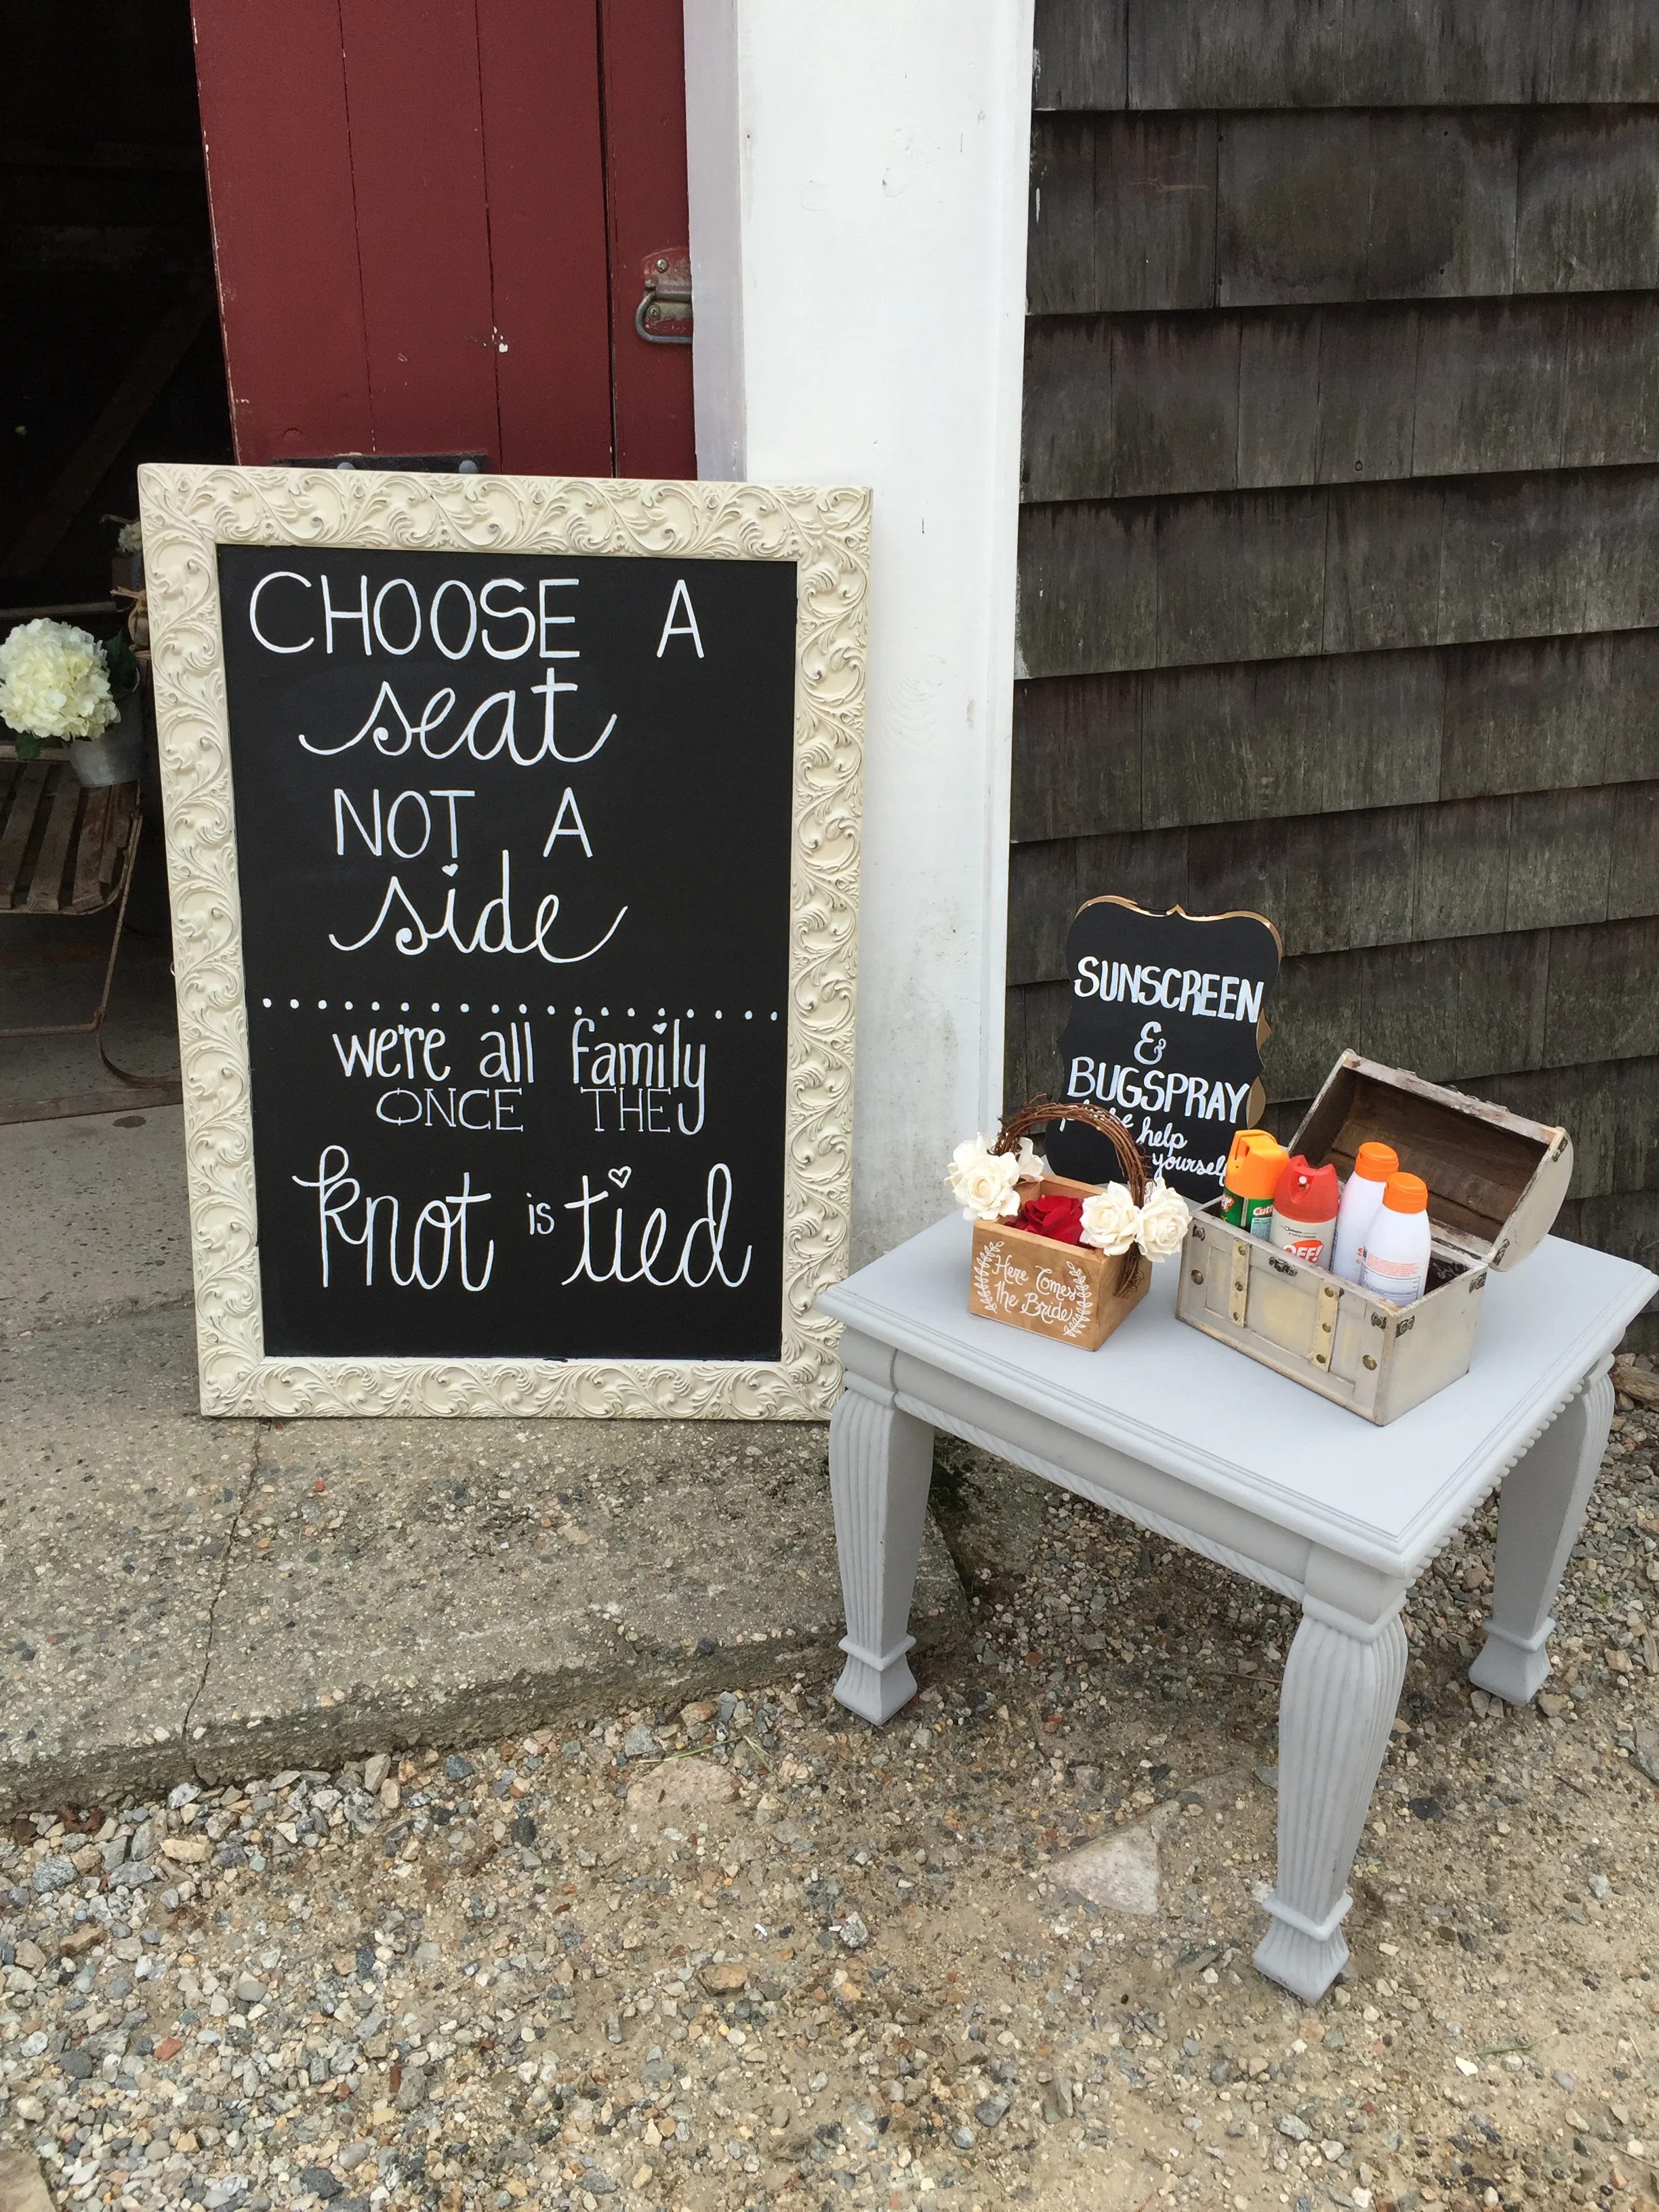 CHOOSE A
seat
NOT A
side
we're all family
ONCE THE
knot is tied
SUNSCREEN
&
BUGSPRAY
help
yourself
Here Comes
the Bride
OFF!